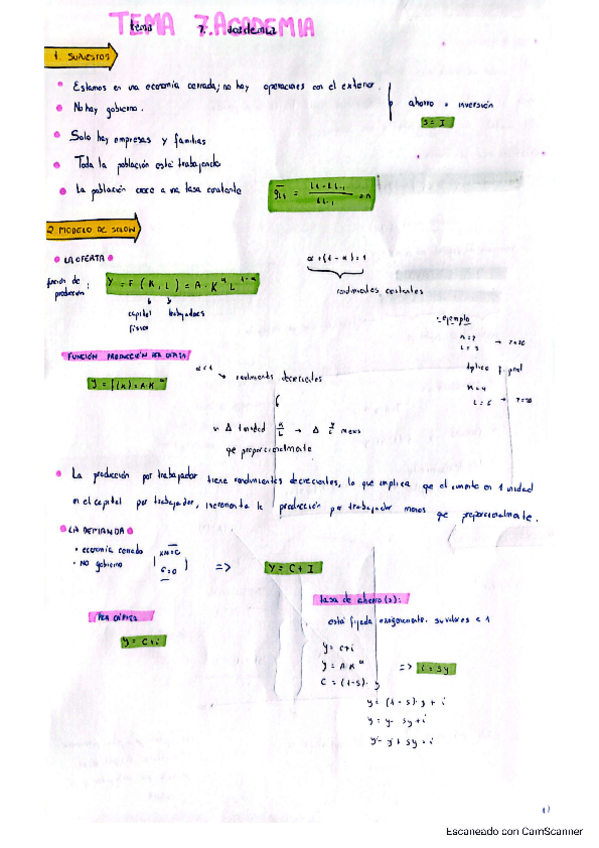 TEMA 7. ACADEMIA
tema 7. academia
1. SUPUESTOS
Estamos en una economía cerrada; no hay operaciones con el exterior.
No hay gobierno.
ahorro = inversión
S = I
Solo hay empresas y familias
Toda la población está trabajando
La población crece a una tasa constante
2 MODELO DE SOLOW
LA OFERTA
función de producción: Y = F(K, L) = A · K^α L^1-α
α + (1 - α) = 1
rendimientos constantes
capital físico
trabajadores
ejemplo
FUNCIÓN PRODUCCIÓN PER CÁPITA
y = f(k) = A·K^α
α < 1
rendimientos decrecientes
Δ 1 unidad K/L → Δ Y/L menos
que proporcionalmente
La producción por trabajador tiene rendimientos decrecientes, lo que implica que el aumento en 1 unidad
en el capital por trabajador, incrementa la producción por trabajador menos que proporcionalmente.
LA DEMANDA
economía cerrada
no gobierno
G=0
=> Y = C + I
PER CÁPITA
y = c+i
tasa de ahorro (s):
está fijada exógenamente.
y = c+i
y = A·K^α
c = (1-s)· y
=> i = sy
y = (1-s)·y + i
y = y - sy + i
Escaneado con CamScanner